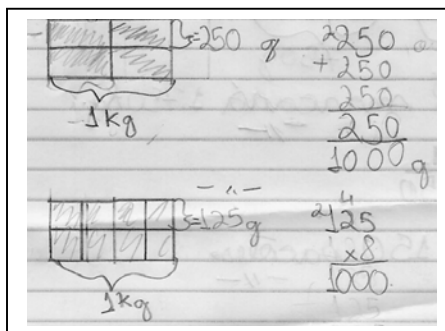 =250 g
1kg
2250
+ 250
250
250
1000 g
-"-
=125g
1kg
4
2125
x8
1000.